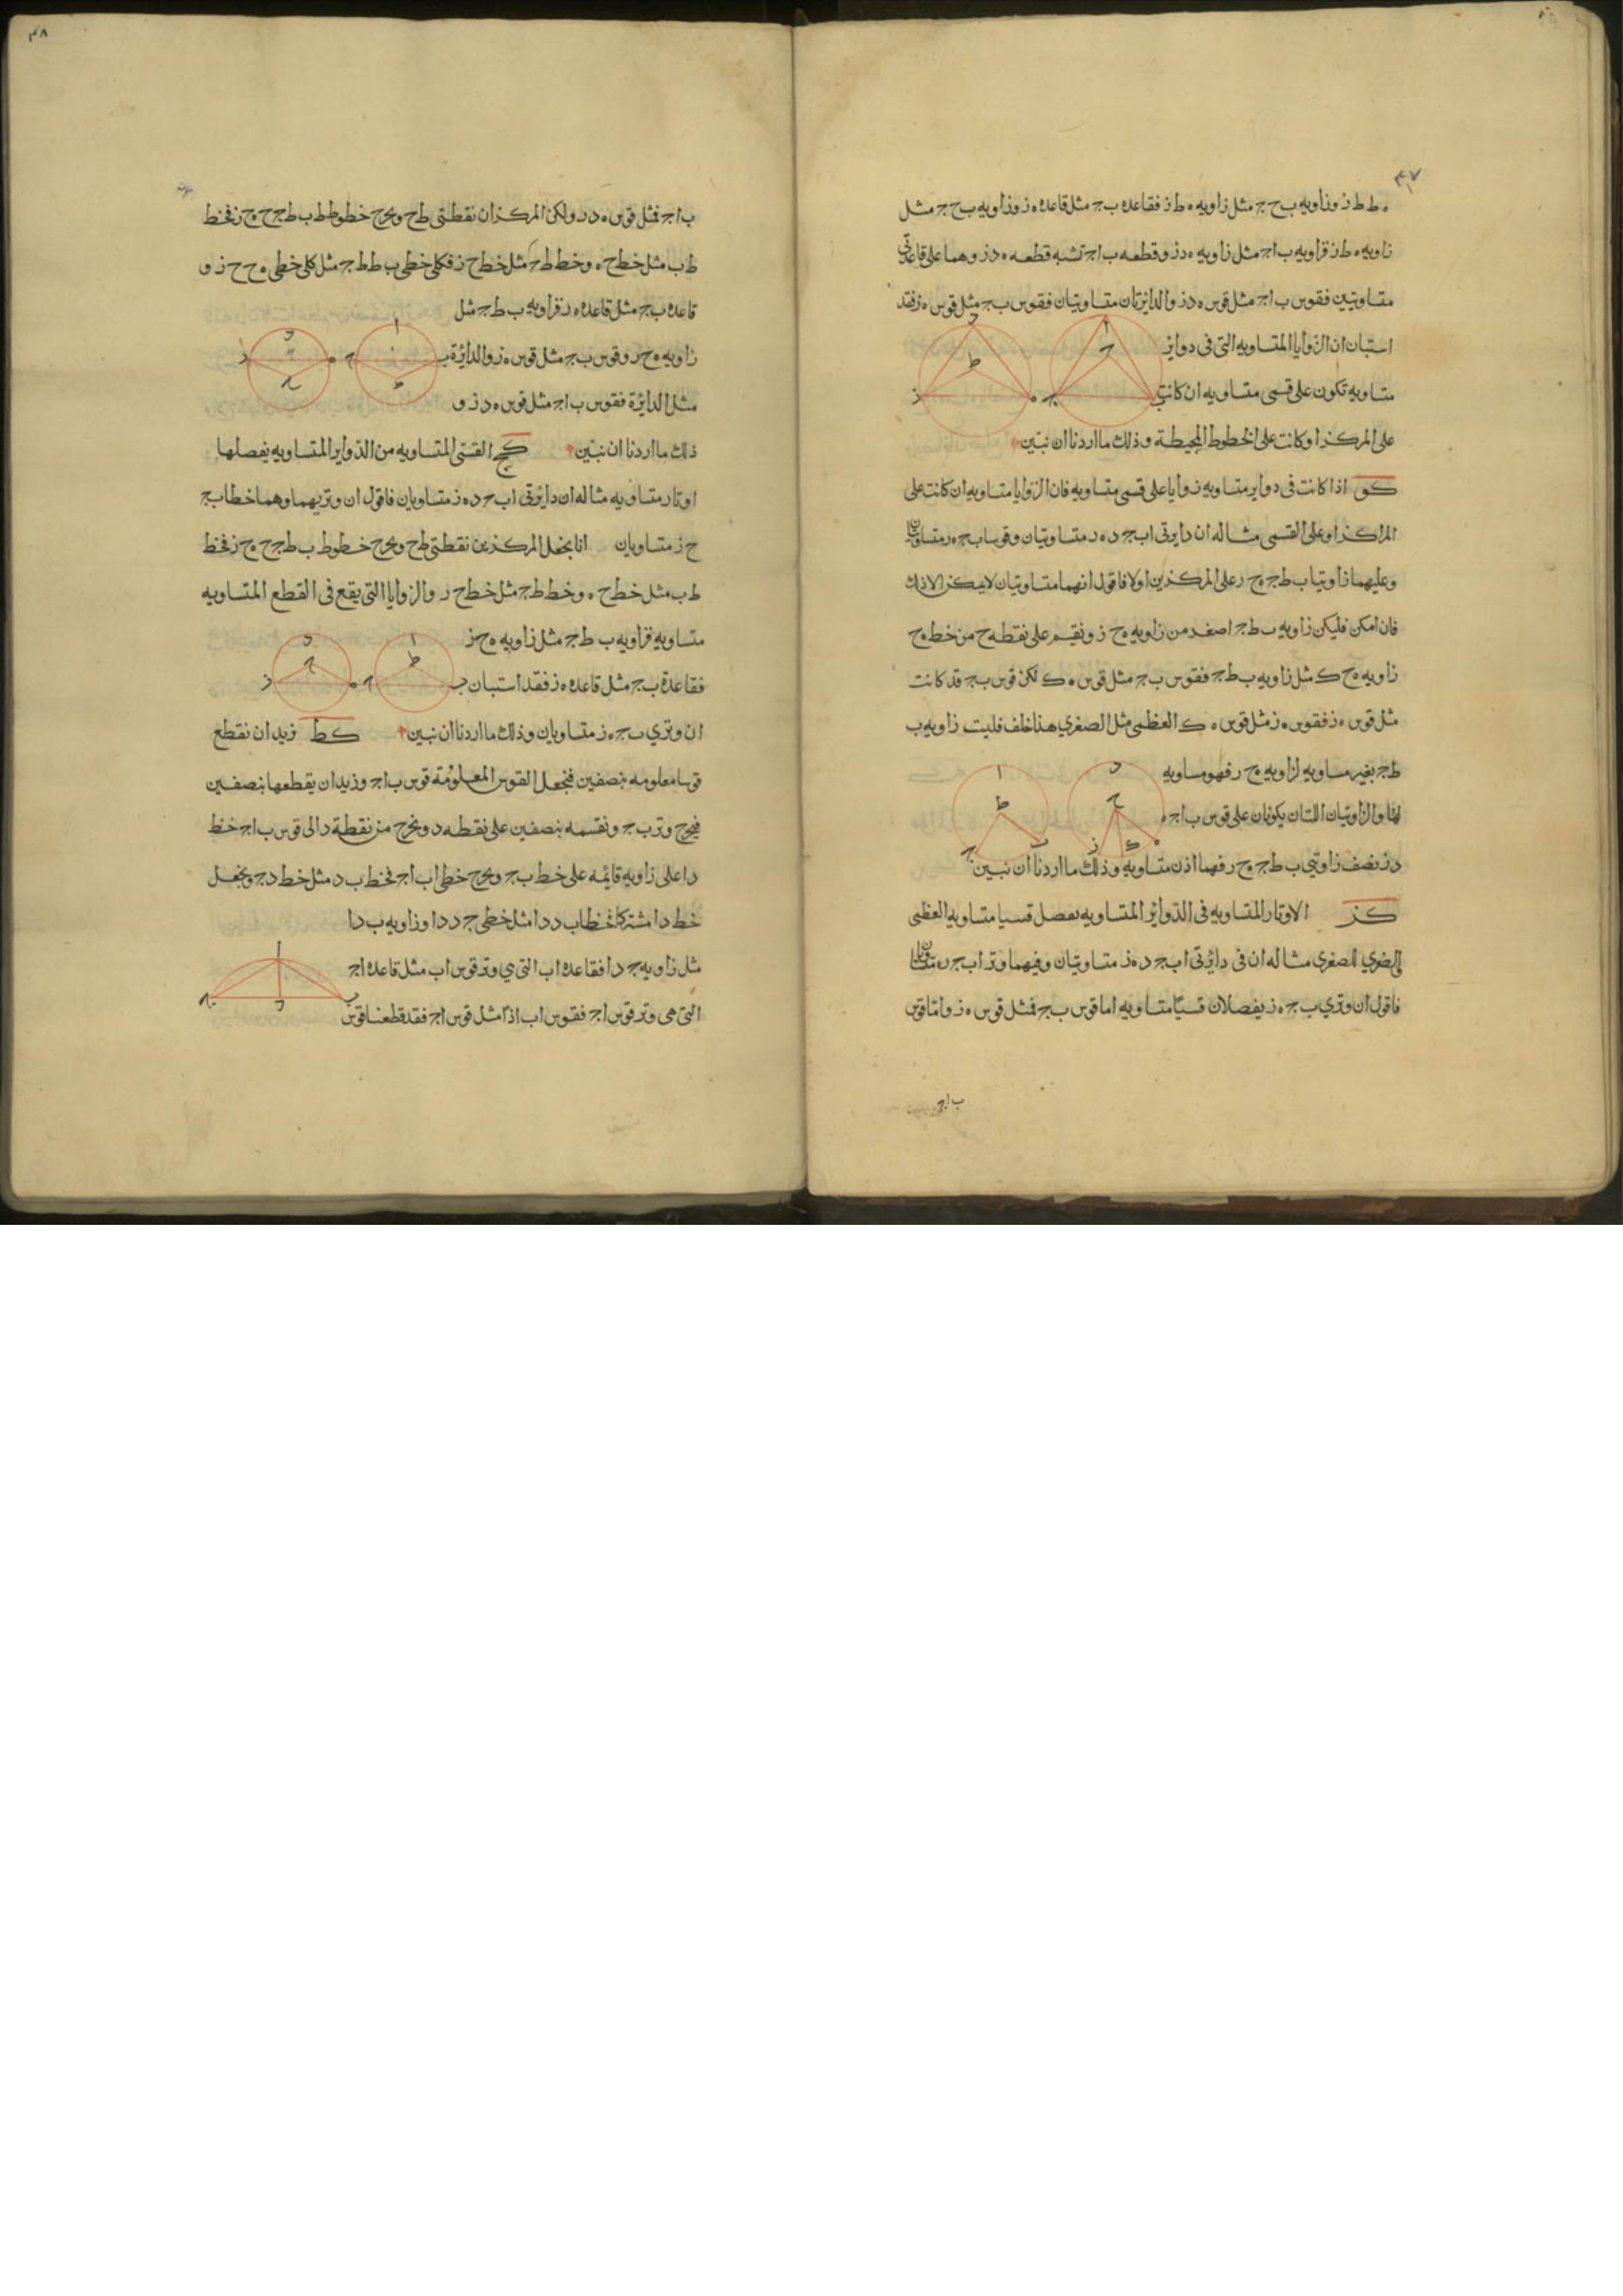 ٤٧
ه ط ط ز وزاويه ب ح ج مثل زاويه ه ط ز فقاعده ب ج مثل قاعده ه ز وزاويه ب ح ج مثل
زاويه ه ط ز فزاويه ب ا ج مثل زاويه ه د ز وقطعه ب ا ج تشبه قطعه ه د ز وهما على قاعدتي
متساويتين فقوس ب ا ج مثل قوس ه د ز والدائرتان متساويتان فقوس ب ج مثل قوس ه ز فقد
استبان ان الزوايا المتساويه التى فى دواير
متساويه تكون على قسى متساويه ان كانت
على المركز او كانت على الخطوط المحيطة وذلك ما اردنا ان نبين
كو اذا كانت فى دواير متساويه زوايا على قسى متساويه فان الزوايا متساويه ان كانت على
المراكز او على القسى مثاله ان دايرتى ا ب ج د ه ر متساويتان وقوسا ب ج ه ر متساويتان
وعليهما زاويتا ب ط ج ه ح ر على المركزين اولا فاقول انهما متساويتان لا يمكن الا ذلك
فان امكن فليكن زاويه ب ط ج اصغر من زاويه ه ح ز ونقيم على نقطه ح من خط ه ح
زاويه ه ح ك مثل زاويه ب ط ج فقوس ب ج مثل قوس ه ك لكن قوس ب ج قد كانت
مثل قوس ه ز فقوس ه ز مثل قوس ه ك العظمى مثل الصغرى هذا خلف فليست زاويه ب
ط ج بغير مساويه لزاويه ه ح ر فهو مساويه
لها والزاويتان اللتان يكونان على قوس ب ا ج ه
د ز نصف زاويتي ب ط ج ه ح ر فهما اذن متساويه وذلك ما اردنا ان نبين
كز الاوتار المتساويه فى الدوائر المتساويه تفصل قسيا متساويه العظمى
الصغرى للصغرى مثاله ان فى دائرتى ا ب ج د ه ز متساويتان وفيهما وتر ا ب ج ه ر
فاقول ان وترى ب ج ه ز يفصلان قسيا متساويه اما قوس ب ج فمثل قوس ه ز واما قوس
ب ا ج
٤٨
ب ا ج فمثل قوس ه د ر ولكن المركزان نقطتى ط ح ونخرج خطوط ط ب ط ج ح ه ح ز فخط
ط ب مثل خط ح ه وخط ط ج مثل خط ح ز فكل خطى ب ط ط ج مثل كلى خطى ه ح ح ز و
قاعده ب ج مثل قاعده ه ز فزاويه ب ط ج مثل
زاويه ه ح ر وقوس ب ج مثل قوس ه ز والدائرة
مثل الدائرة فقوس ب ا ج مثل قوس ه د ز و
ذلك ما اردنا ان نبين كح القسى المتساويه من الدواير المتساويه يفصلها
اوتار متساويه مثاله ان دايرتى ا ب ج د ه ز متساويان فاقول ان وتريهما وهما خطا ب ج
ح ز متساويان انا نجعل المركزين نقطتى ط ح ونخرج خطوط ب ط ج ح ه ح ز فخط
ط ب مثل خط ح ه وخط ط ج مثل خط ح ر والزوايا التى يقع فى القطع المتساويه
متساويه فزاويه ب ط ج مثل زاويه ه ح ز
فقاعدة ب ج مثل قاعده ه ز فقد استبان
ان وترى ب ج ه ز متساويان وذلك ما اردنا ان نبين كط نريد ان نقطع
قوسا معلومه بنصفين فنجعل القوس المعلومة قوس ب ا ج ونريد ان يقطعها بنصفين
فيخرج وتر ب ج ونقسمه بنصفين على نقطه د ونخرج من نقطة د الى قوس ب ا ج خط
د ا على زاويه قائمه على خط ب ج ونخرج خطى ا ب ا ج فخط ب د مثل خط د ج ونجعل
خط د ا مشتركا فخطا ب د د ا مثل خطى ج د د ا وزاويه ب د ا
مثل زاويه ج د ا فقاعده ا ب التى هي وتر قوس ا ب مثل قاعده ا ج
التى هى وتر قوس ا ج فقوس ا ب اذا مثل قوس ا ج فقد قطعنا قوس